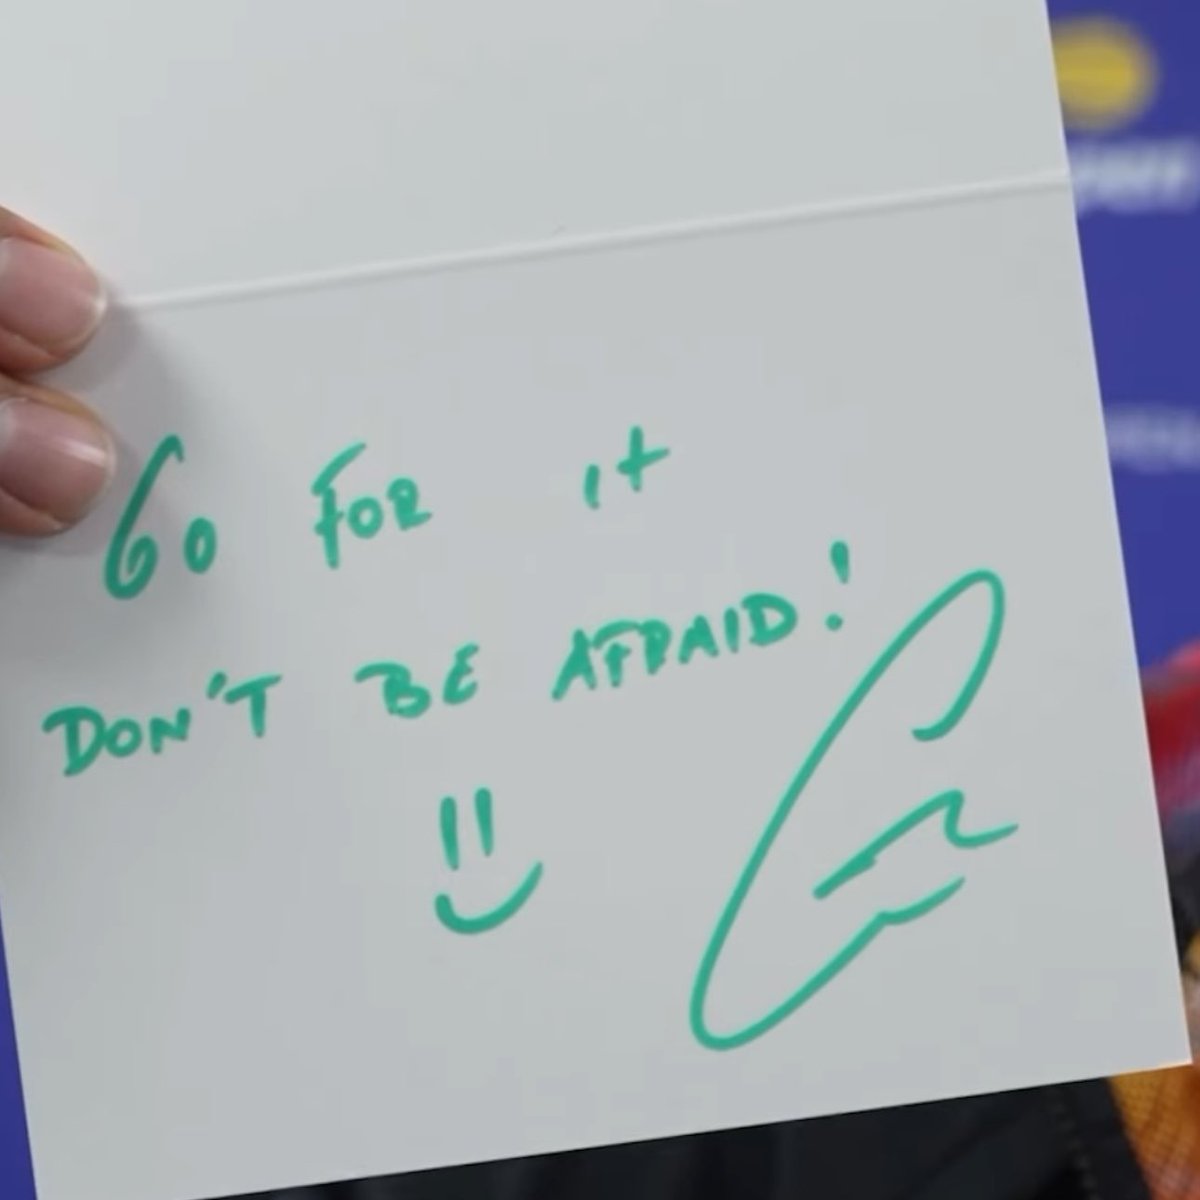 Go FOR it
DON'T BE AFRAID!